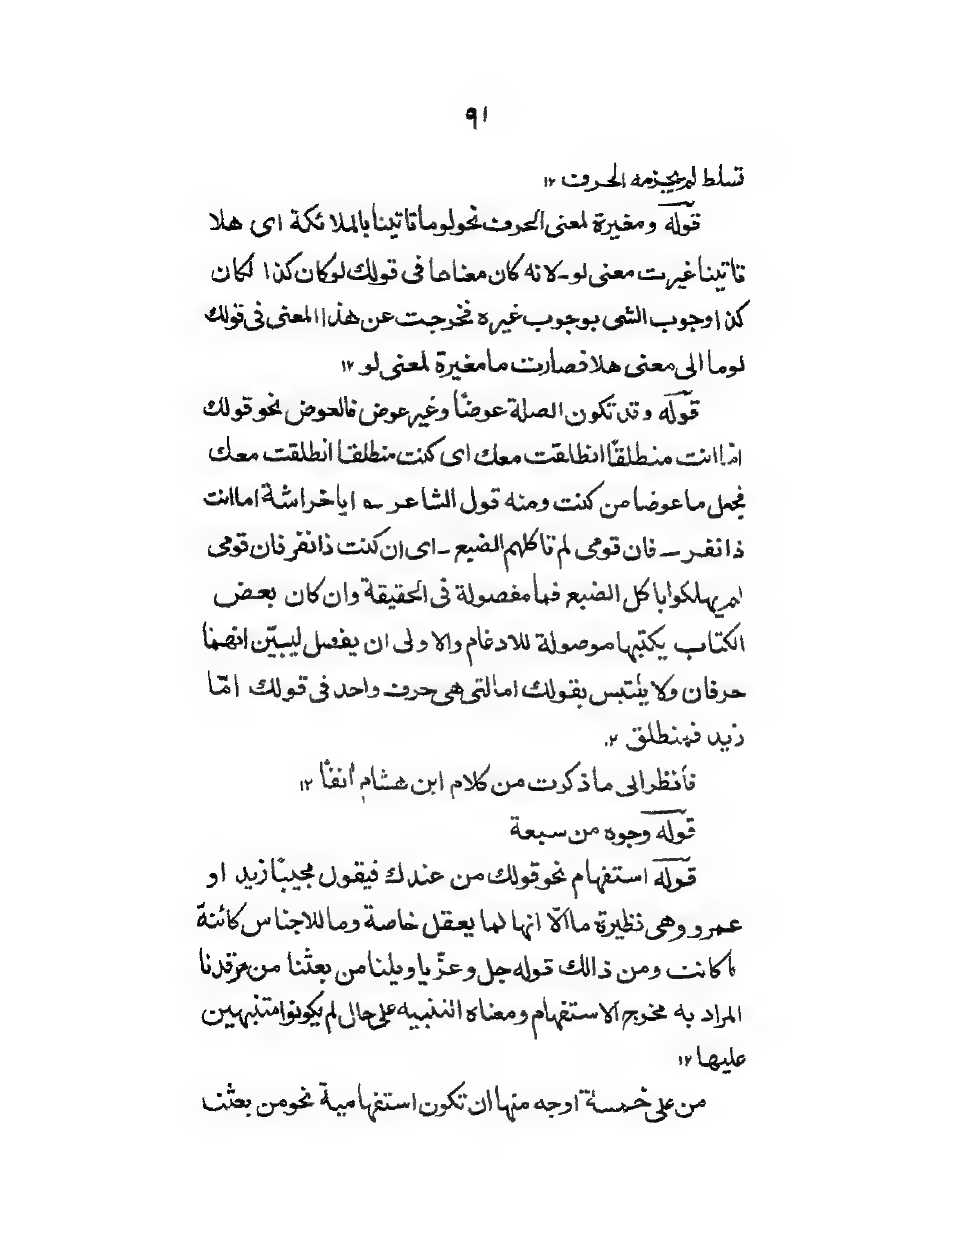 ٩١
تسلط لم يجزمه الحرف ١٢
قوله ومغيرة لمعنى الحرف نحو لوما تاتينا بالملائكة اى هلا
تاتينا غيرت معنى لو ـ لانه كان معناها فى قولك لو كان كذا لكان
كذا وجوب الشى بوجوب غيره فخرجت عن هذا المعنى فى قولك
لوما الى معنى هلا فصارت ما مغيرة لمعنى لو ١٢
قوله وقد تكون الصلة عوضاً وغير عوض فالعوض نحو قولك
امّا انت منطلقاً انطلقت معك اى كنت منطلقا انطلقت معك
فجعل ما عوضا من كنت ومنه قول الشاعر ـه ايا خراشة اما انت
ذا نفر ـ فان قومى لم تاكلهم الضبع ـ اى ان كنت ذا نفر فان قومى
لم يهلكوا باكل الضبع فما مفصولة فى الحقيقة وان كان بعض
الكتاب يكتبها موصولة للادغام والاولى ان يفصل ليبيّن انهما
حرفان ولا يلتبس بقولك اما التى هى حرف واحد فى قولك امّا
زيد فمنطلق ١٢
فأنظر الى ما ذكرت من كلام ابن هشام أنفاً ١٢
قوله وجوه من سبعة
قوله استفهام نحو قولك من عندك فيقول مجيباً زيد او
عمرو وهى نظيرة ما الّا انها لما يعقل خاصة وما للاجناس كائنة
ما كانت ومن ذالك قوله جل وعزّ يا ويلنا من بعثنا من مرقدنا
المراد به مخرج الاستفهام ومعناه التنبيه على حال لم يكونوا متنبهين
عليها ١٢
من على خمسة اوجه منها ان تكون استفهامية نحو من بعثنا